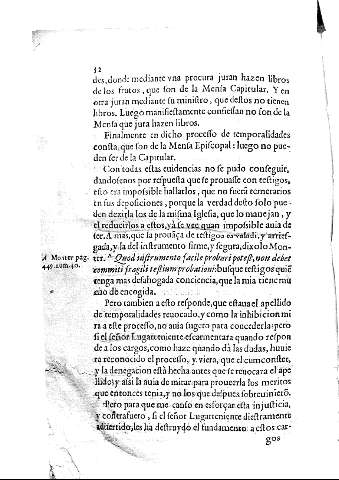 52
des, donde mediante vna procura juran hazen libros
de los frutos, que son de la Mensa Capitular. Y en
otra juran mediante su ministro, que destos no tienen
libros. Luego manifiestamente confiessan no son de la
Mensa que jura hazen libros.
Finalmente en dicho processo de temporalidades
consta, que son de la Mensa Episcopal: luego no pue-
den ser de la Capitular.
Con todas estas euidencias no se pudo conseguir,
dandosenos por respuesta que se prouasse con testigos,
esto era impossible hallarlos, que no fuera temerarios
en sus deposiciones, porque la verdad desto solo pue-
den dezirla los de la misma Iglesia, que lo manejan, y
el reducirlos a estos, ya se vee quan impossible auia de
ser. A mas, que la prouãça de testigos es
gada, y la del instrumento firme, y segura, dixolo Mon-
ter. A Quod instrumento facile probari potest, non debet
committi fragili testium probationi: busque testigos quiẽ
tenga mas desahogada conciencia, que la mia tiene mu
cho de encogida.
A Monter pag.
449. num. 40.
Pero tambien a esto responde, que estaua el apellido
de temporalidades reuocado, y como la inhibicion mi
ra a este processo, no auia sugeto para concederla: pero
si el señor Lugarteniente escarmentara quando respon
de a los cargos, como haze quando dà las dudas, huuie
ra reconocido el processo, y viera, que el
y la denegacion està hecha antes que se reuocara el ape
llido; y assi la auia de mirar para proueerla los meritos
que entonces tenia, y no los que despues sobreuinierõ.
Pero para que me canso en esforçar esta injusticia,
y contrafuero, si el señor Lugarteniente diestramente
aduertido, les ha destruydo el fundamento: a estos car-
gos